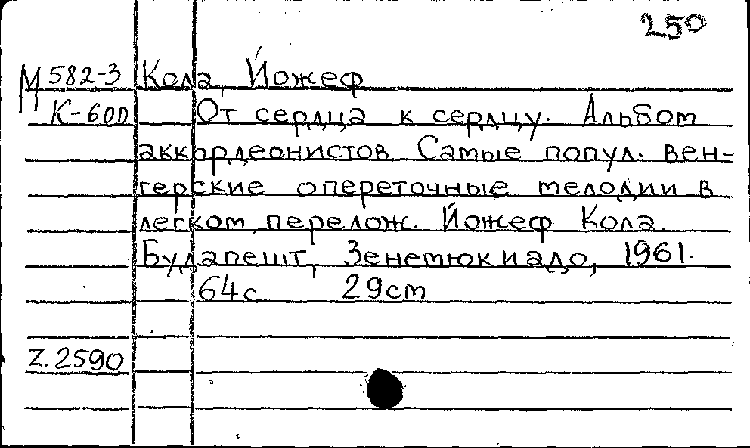 250
М 582-3 Кола, Йожеф
К-600 От сердца к сердцу. Альбом
аккордеонистов Самые попул. вен-
герские опереточные мелодии в
легком перелож. Йожеф Кола.
Будапешт, Зенемюкиадо, 1961.
64с 29cm
Z.2590